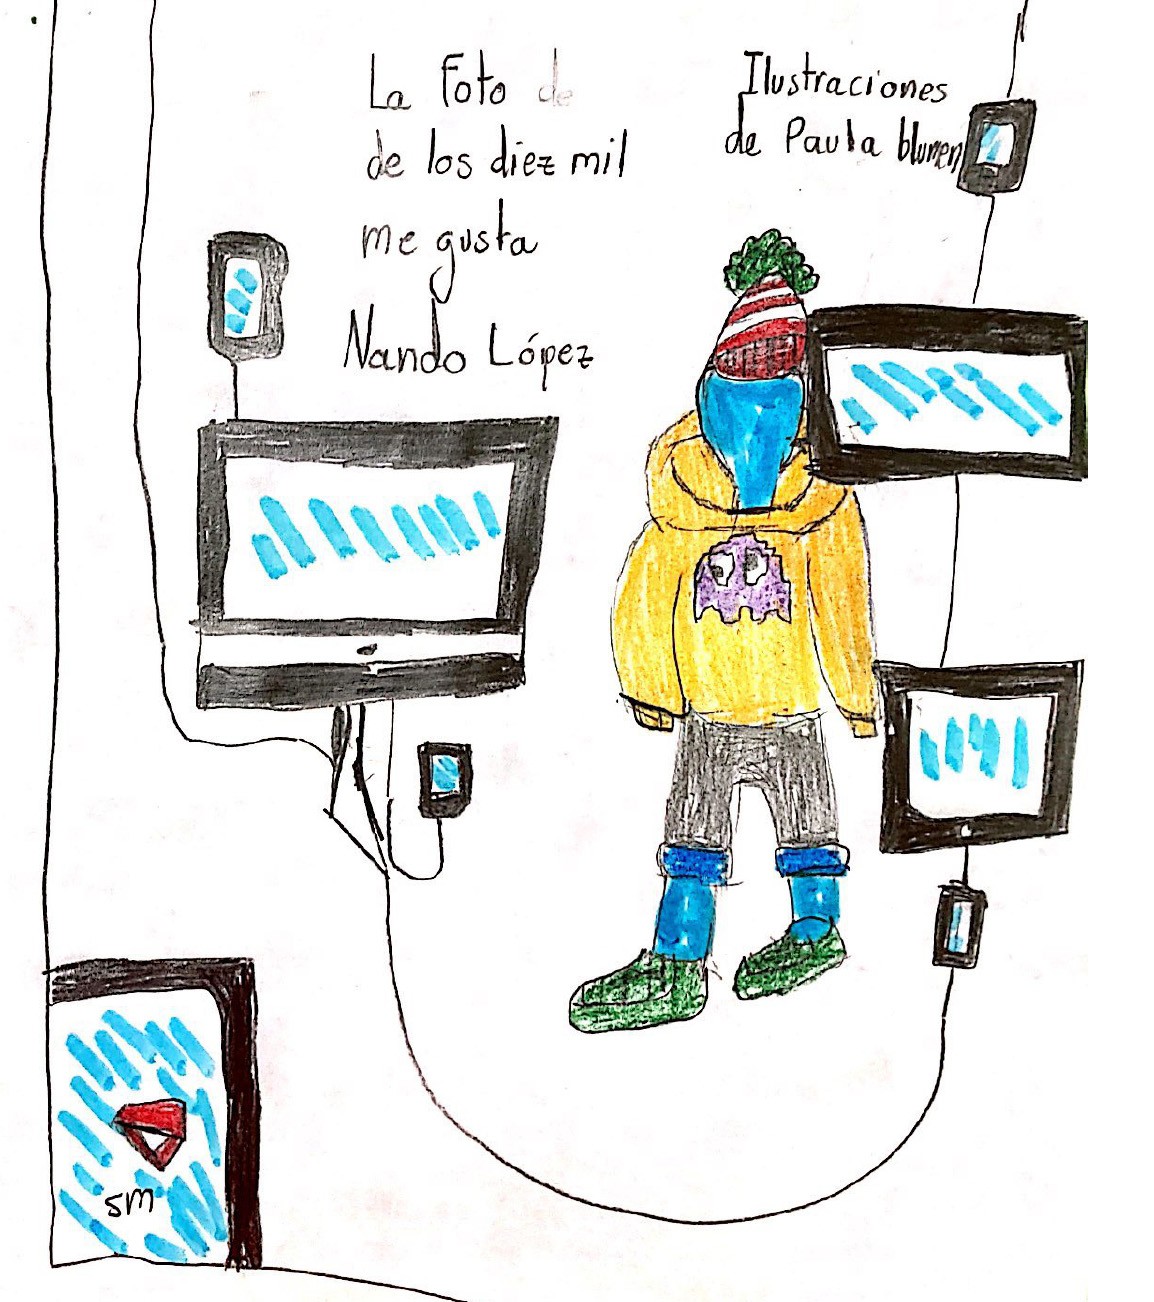 La Foto de
de los diez mil
me gusta
Nando López
Ilustraciones
de Paula blumen
SM